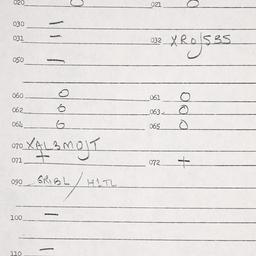 020 0 021 0
030 —
031 — 032 XR0J535
050 —
060 0 061 0
062 0 063 0
064 0 065 0
070 XAL3M0JT
071 + 072 +
090 GRIBL/H1TL
100 —
110 —